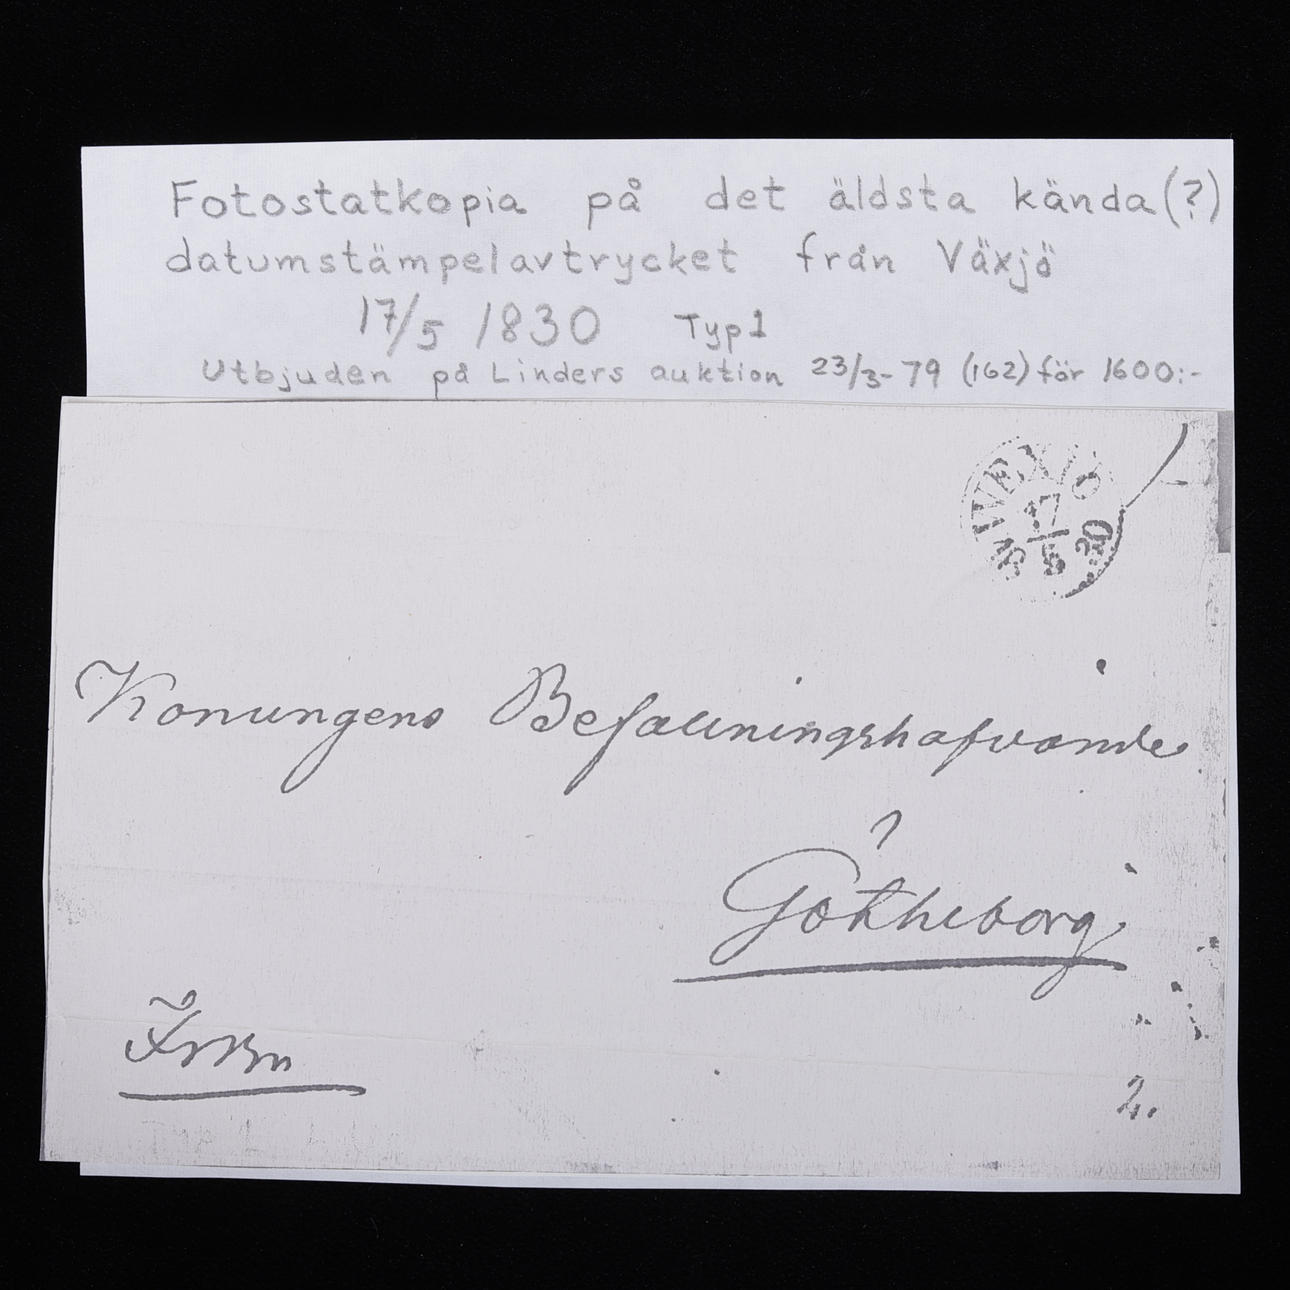 Fotostatkopia på det äldsta kända(?)
datumstämpelavtrycket från Växjö
17/5 1830 Typ1
Utbjuden på Linders auktion 23/3-79 (162) för 1600:-
WEXIÖ
17
5
30
Konungens Befallningshafvande
Götheborg
2.